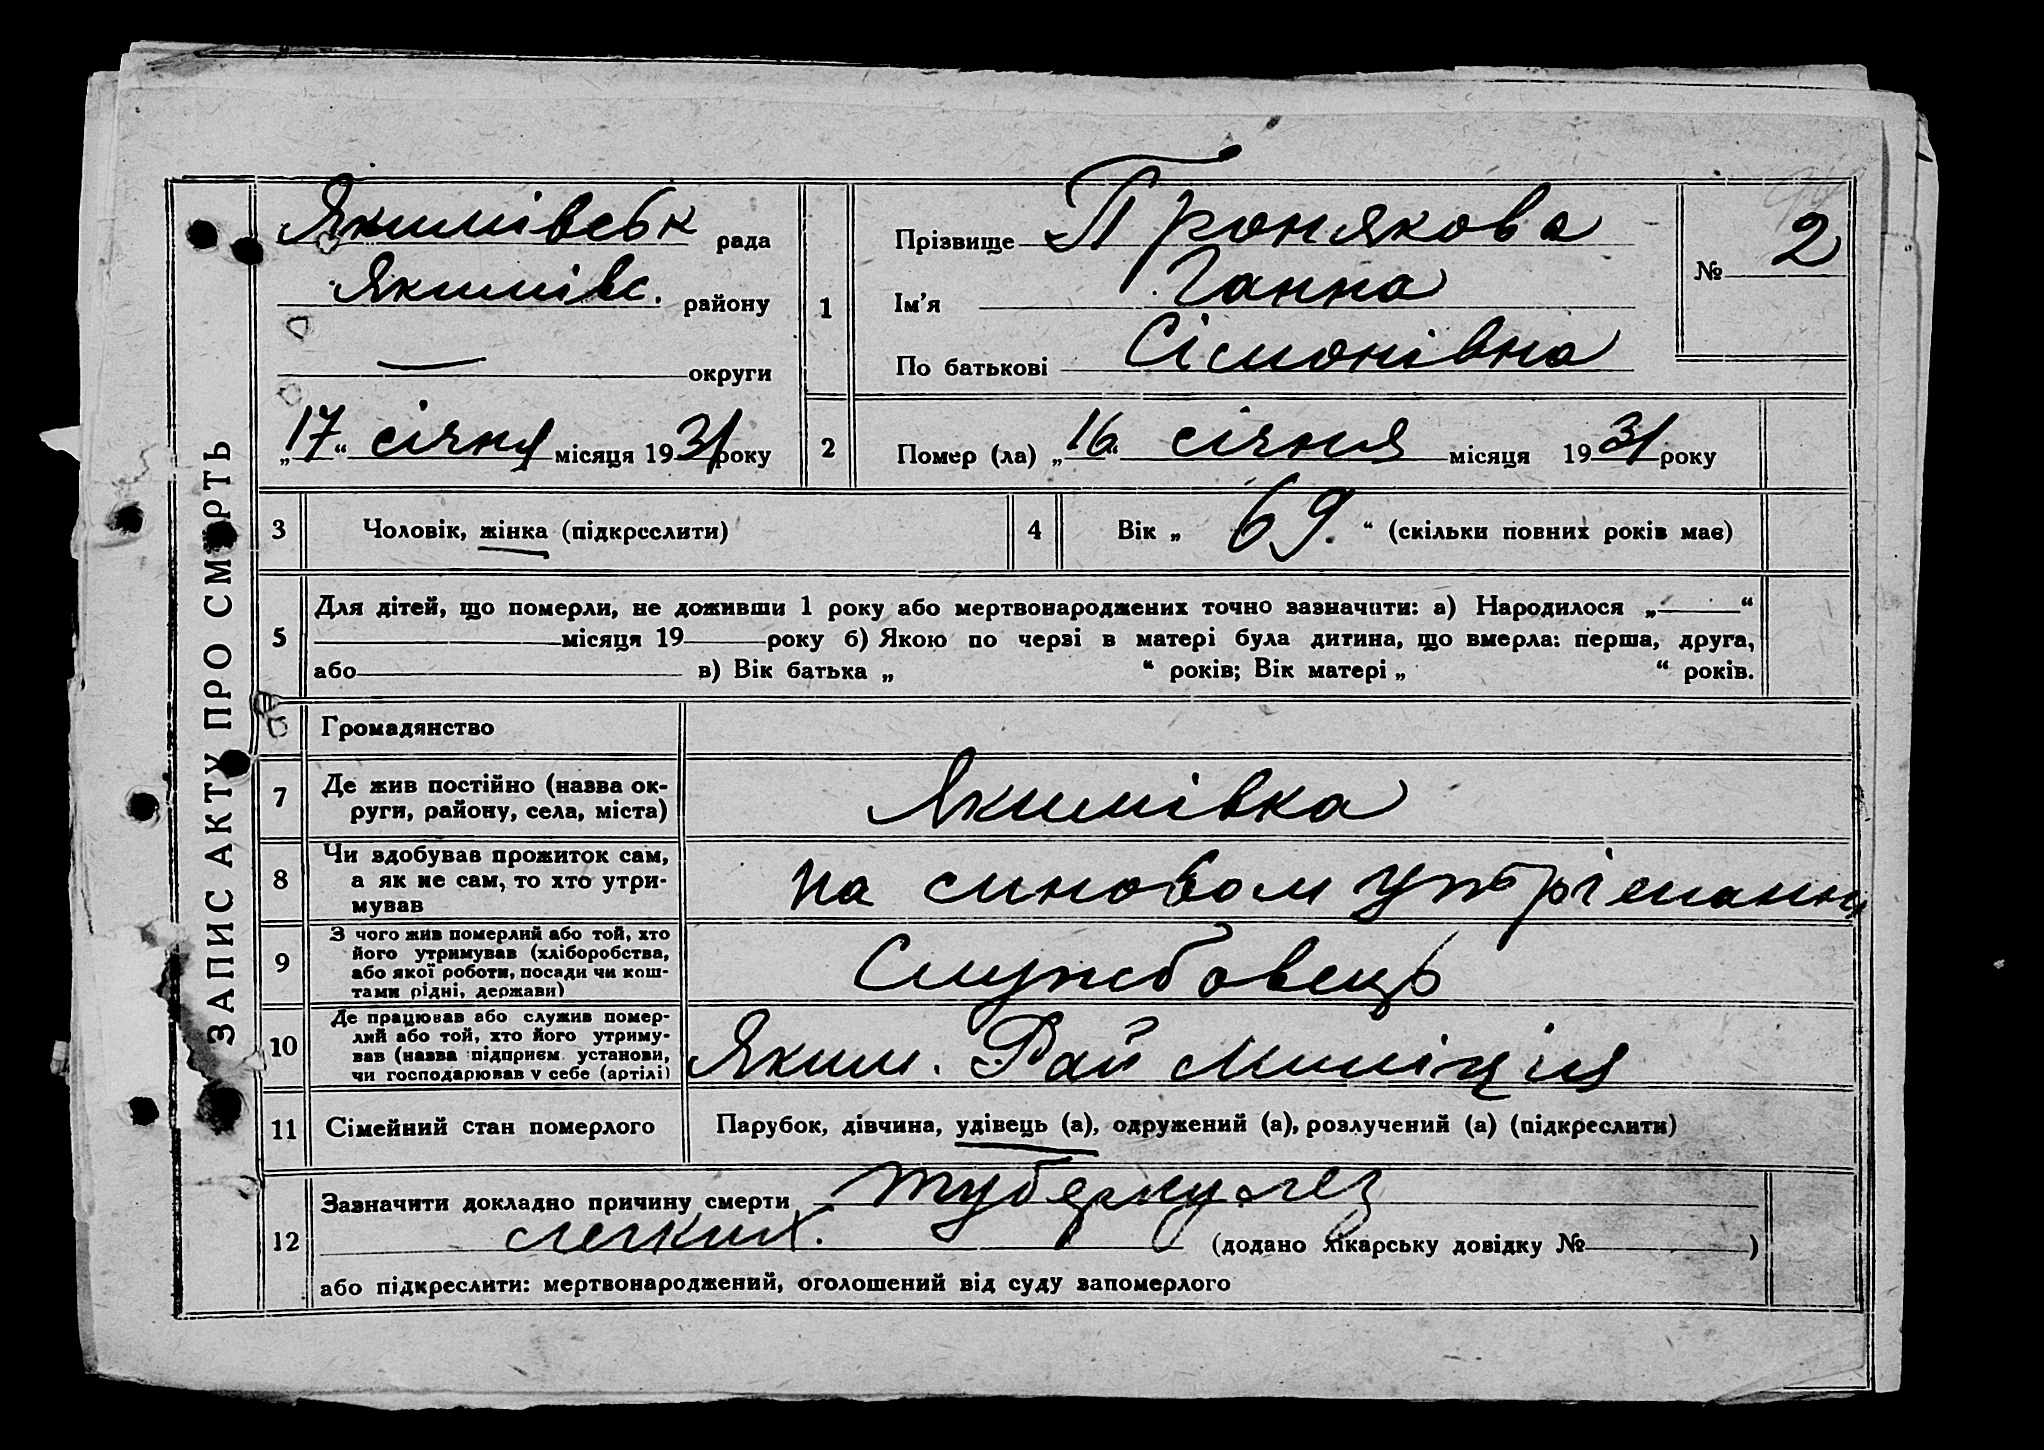 ЗАПИС АКТУ ПРО СМЕРТЬ
Якимівськ рада
Якимівс. району
— округи
„17“ січня місяця 1931 року
1
Прізвище Пронякова
Ім'я Ганна
По батькові Сімонівна
№ 2
2
Помер (ла) „16“ січня місяця 1931 року
3 Чоловік, жінка (підкреслити)
4 Вік „ 69. “ (скільки повних років має)
5
Для дітей, що померли, не доживши 1 року або мертвонароджених точно зазначити: а) Народилося „ “
місяця 19 року б) Якою по черзі в матері була дитина, що вмерла: перша, друга,
або в) Вік батька „ “ років; Вік матері „ “ років.
6 Громадянство
7 Де жив постійно (назва ок-
руги, району, села, міста)
Якимівка
8 Чи здобував прожиток сам,
а як не сам, то хто утри-
мував
на синовом утріманни
9 З чого жив померлий або той, хто
його утримував (хліборобства,
або якої роботи, посади чи кош-
тами рідні, держави)
Службовець
10 Де працював або служив помер-
лий або той, хто його утриму-
вав (назва підприєм. установи,
чи господарював у себе (артілі)
Яким. Рай міліція
11 Сімейний стан померлого
Парубок, дівчина, удівець (а), одружений (а), розлучений (а) (підкреслити)
12
Зазначити докладно причину смерти туберкулез
легких. (додано лікарську довідку № )
або підкреслити: мертвонароджений, оголошений від суду запомерлого